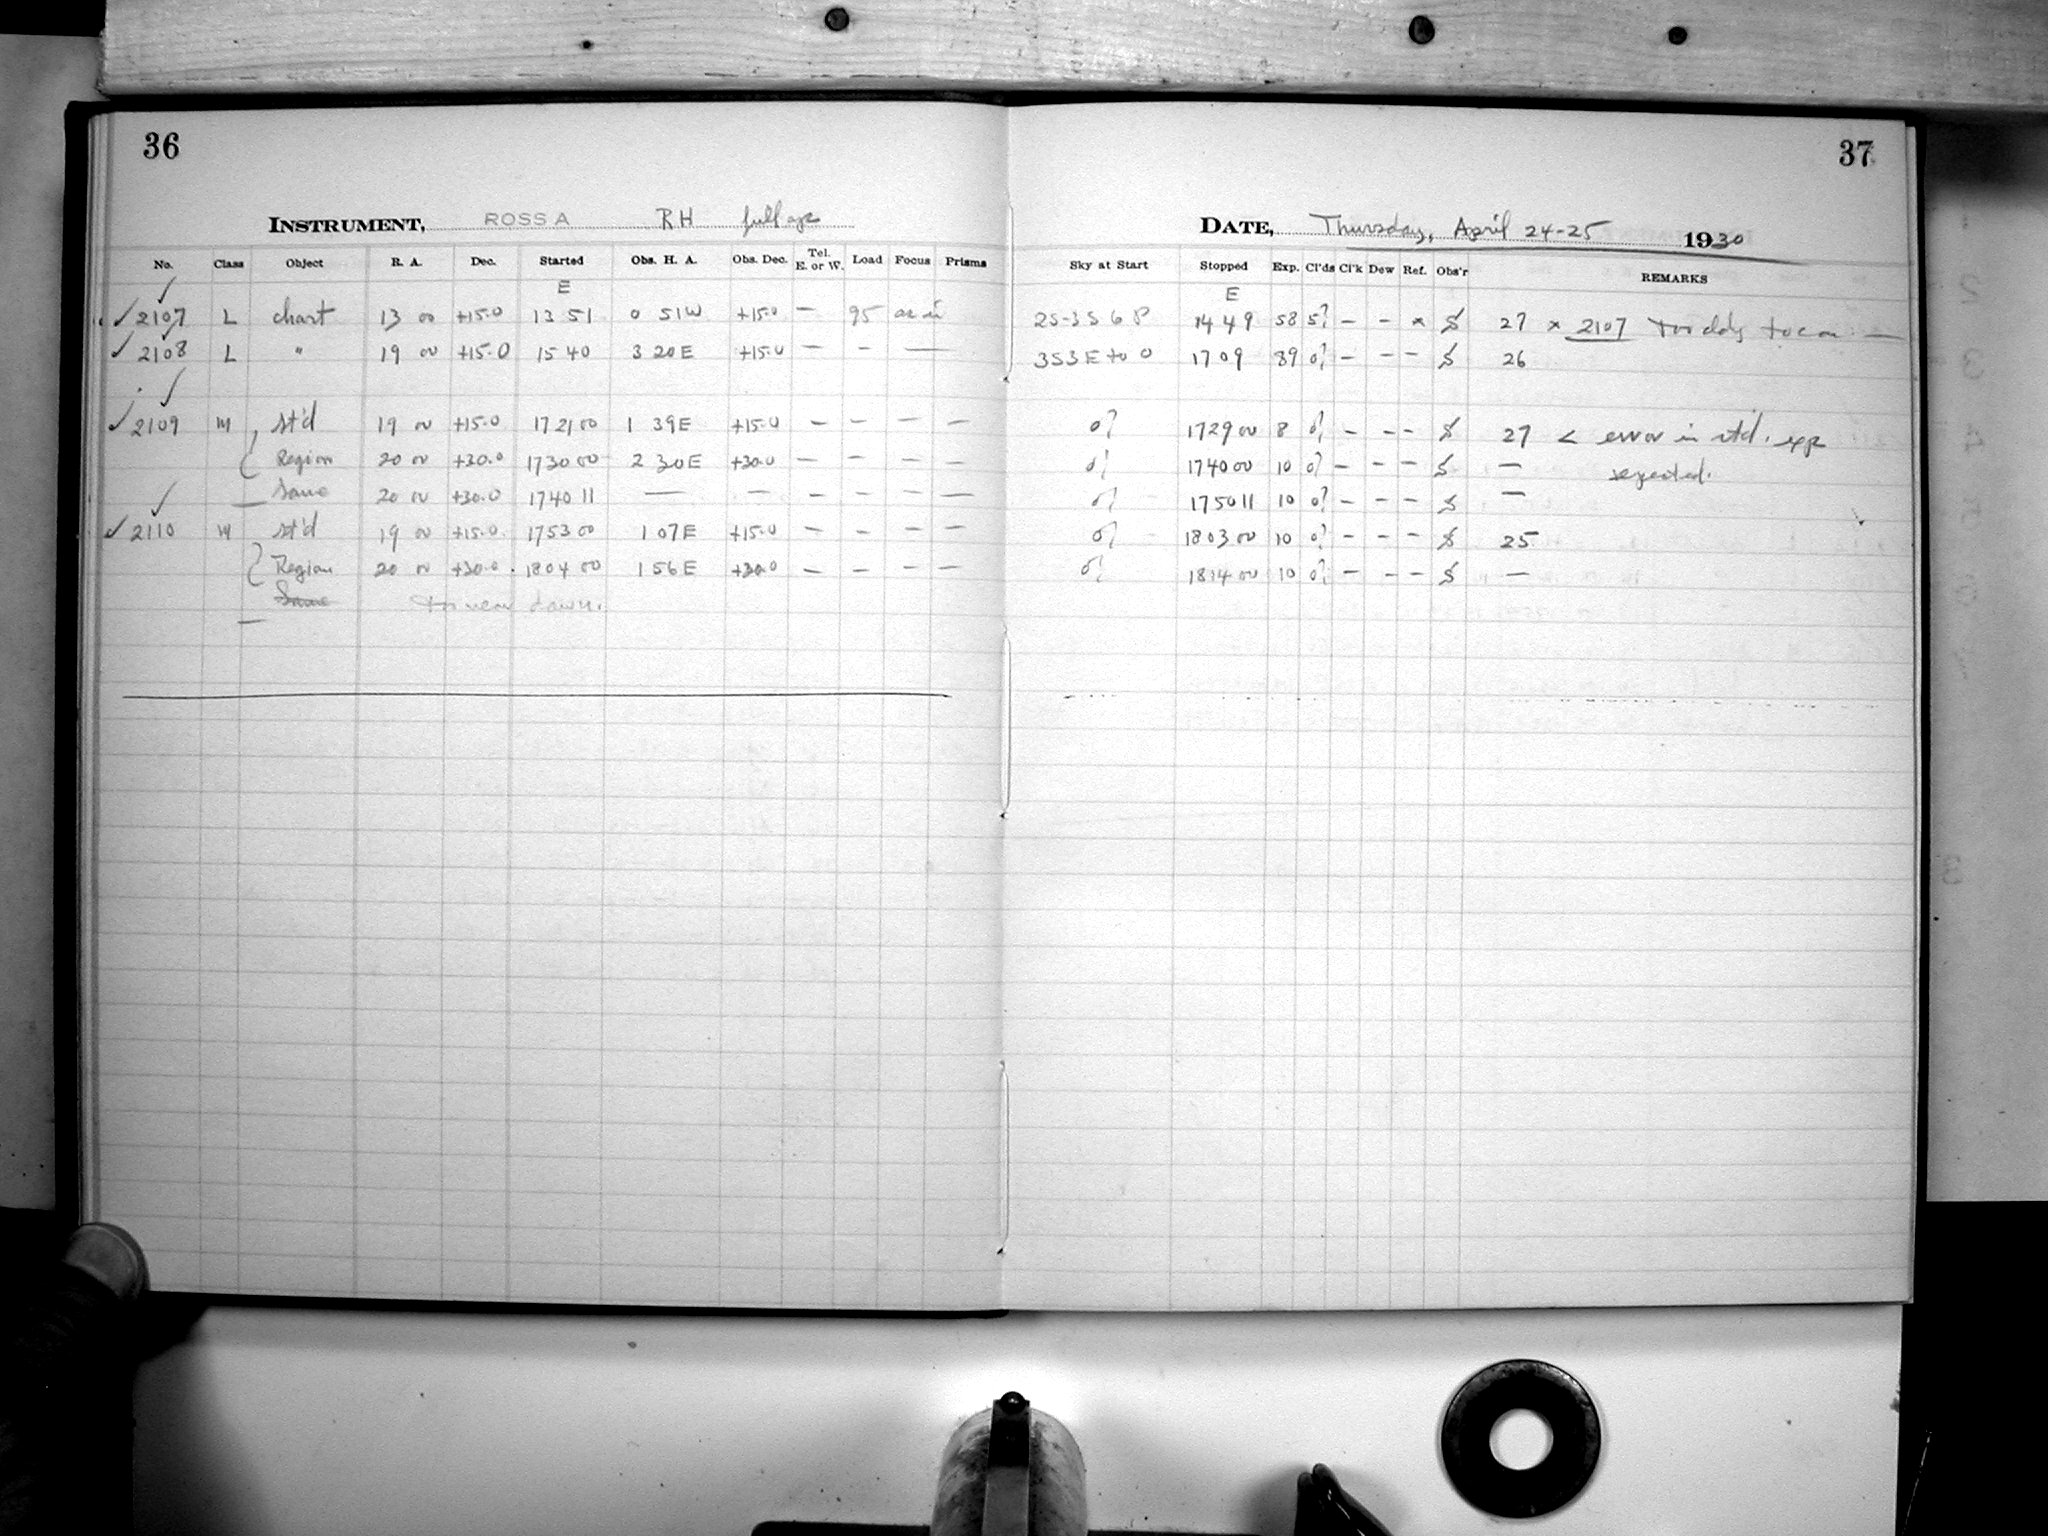 36
INSTRUMENT, ROSS A RH full ap
No. Class Object R. A. Dec. Started Obs. H. A. Obs. Dec. Tel. E. or W. Load Focus Prisms
E
✓ 2107 L chart 13 00 +15.0 13 51 0 51W +15.0 — 95 as is
✓ 2108 L " 19 00 +15.0 15 40 3 20E +15.0 — — —
✓ 2109 M st'd 19 00 +15.0 17 21 00 1 39E +15.0 — — — —
Region 20 00 +30.0 17 30 00 2 30E +30.0 — — — —
Same 20 00 +30.0 17 40 11 — — — — — —
✓ 2110 M st'd 19 00 +15.0 17 53 00 1 07E +15.0 — — — —
Region 20 00 +30.0 18 04 00 1 56E +30.0 — — — —
Same too near dawn.
37
DATE, Thursday, April 24-25 1930
Sky at Start Stopped Exp. Cl'ds Cl'k Dew Ref. Obs'r REMARKS
E
2S-3S 6 P 14 49 58 5? — — x S 27 x 2107
3S3E to 0 17 09 89 0? — — — S 26
0? 17 29 00 8 0? — — — S 27 < error in std. exp
0? 17 40 00 10 0? — — — S — rejected.
0? 17 50 11 10 0? — — — S —
0? 18 03 00 10 0? — — — S 25
0? 18 14 00 10 0? — — — S —